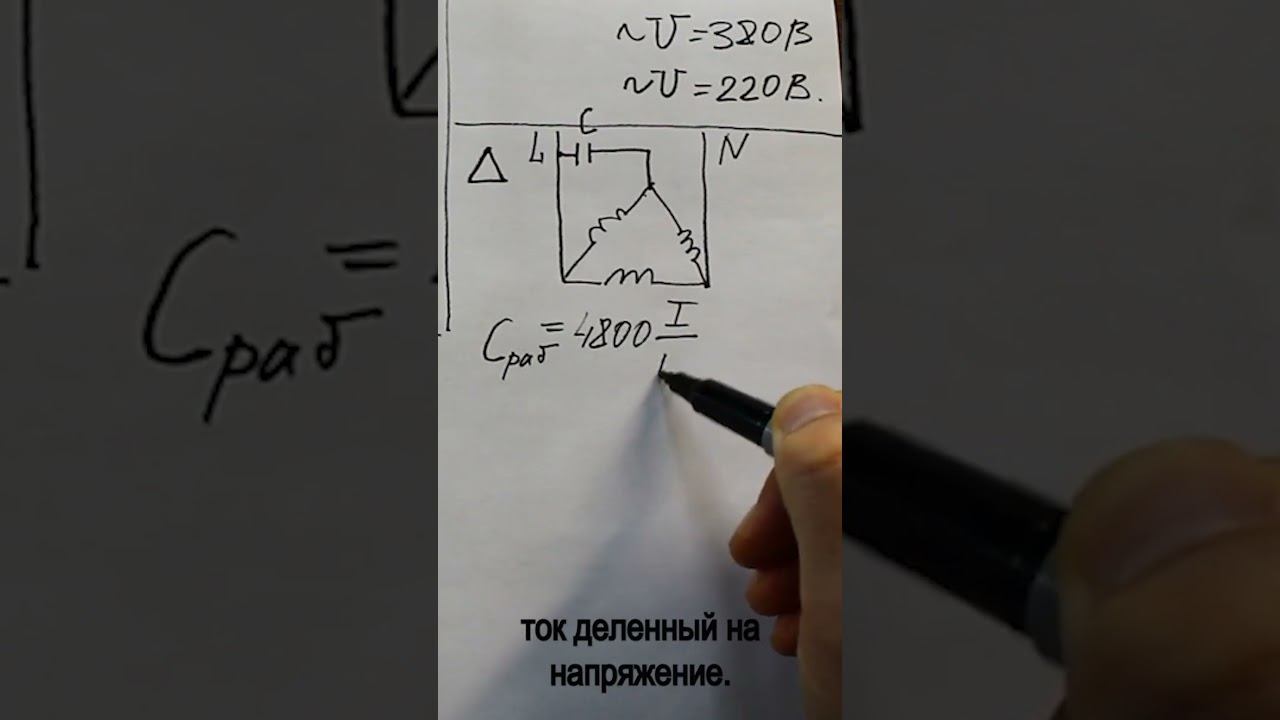 ~U=380В
~U=220В.
C
Δ L N
Cраб=4800 I
ток деленный на
напряжение.